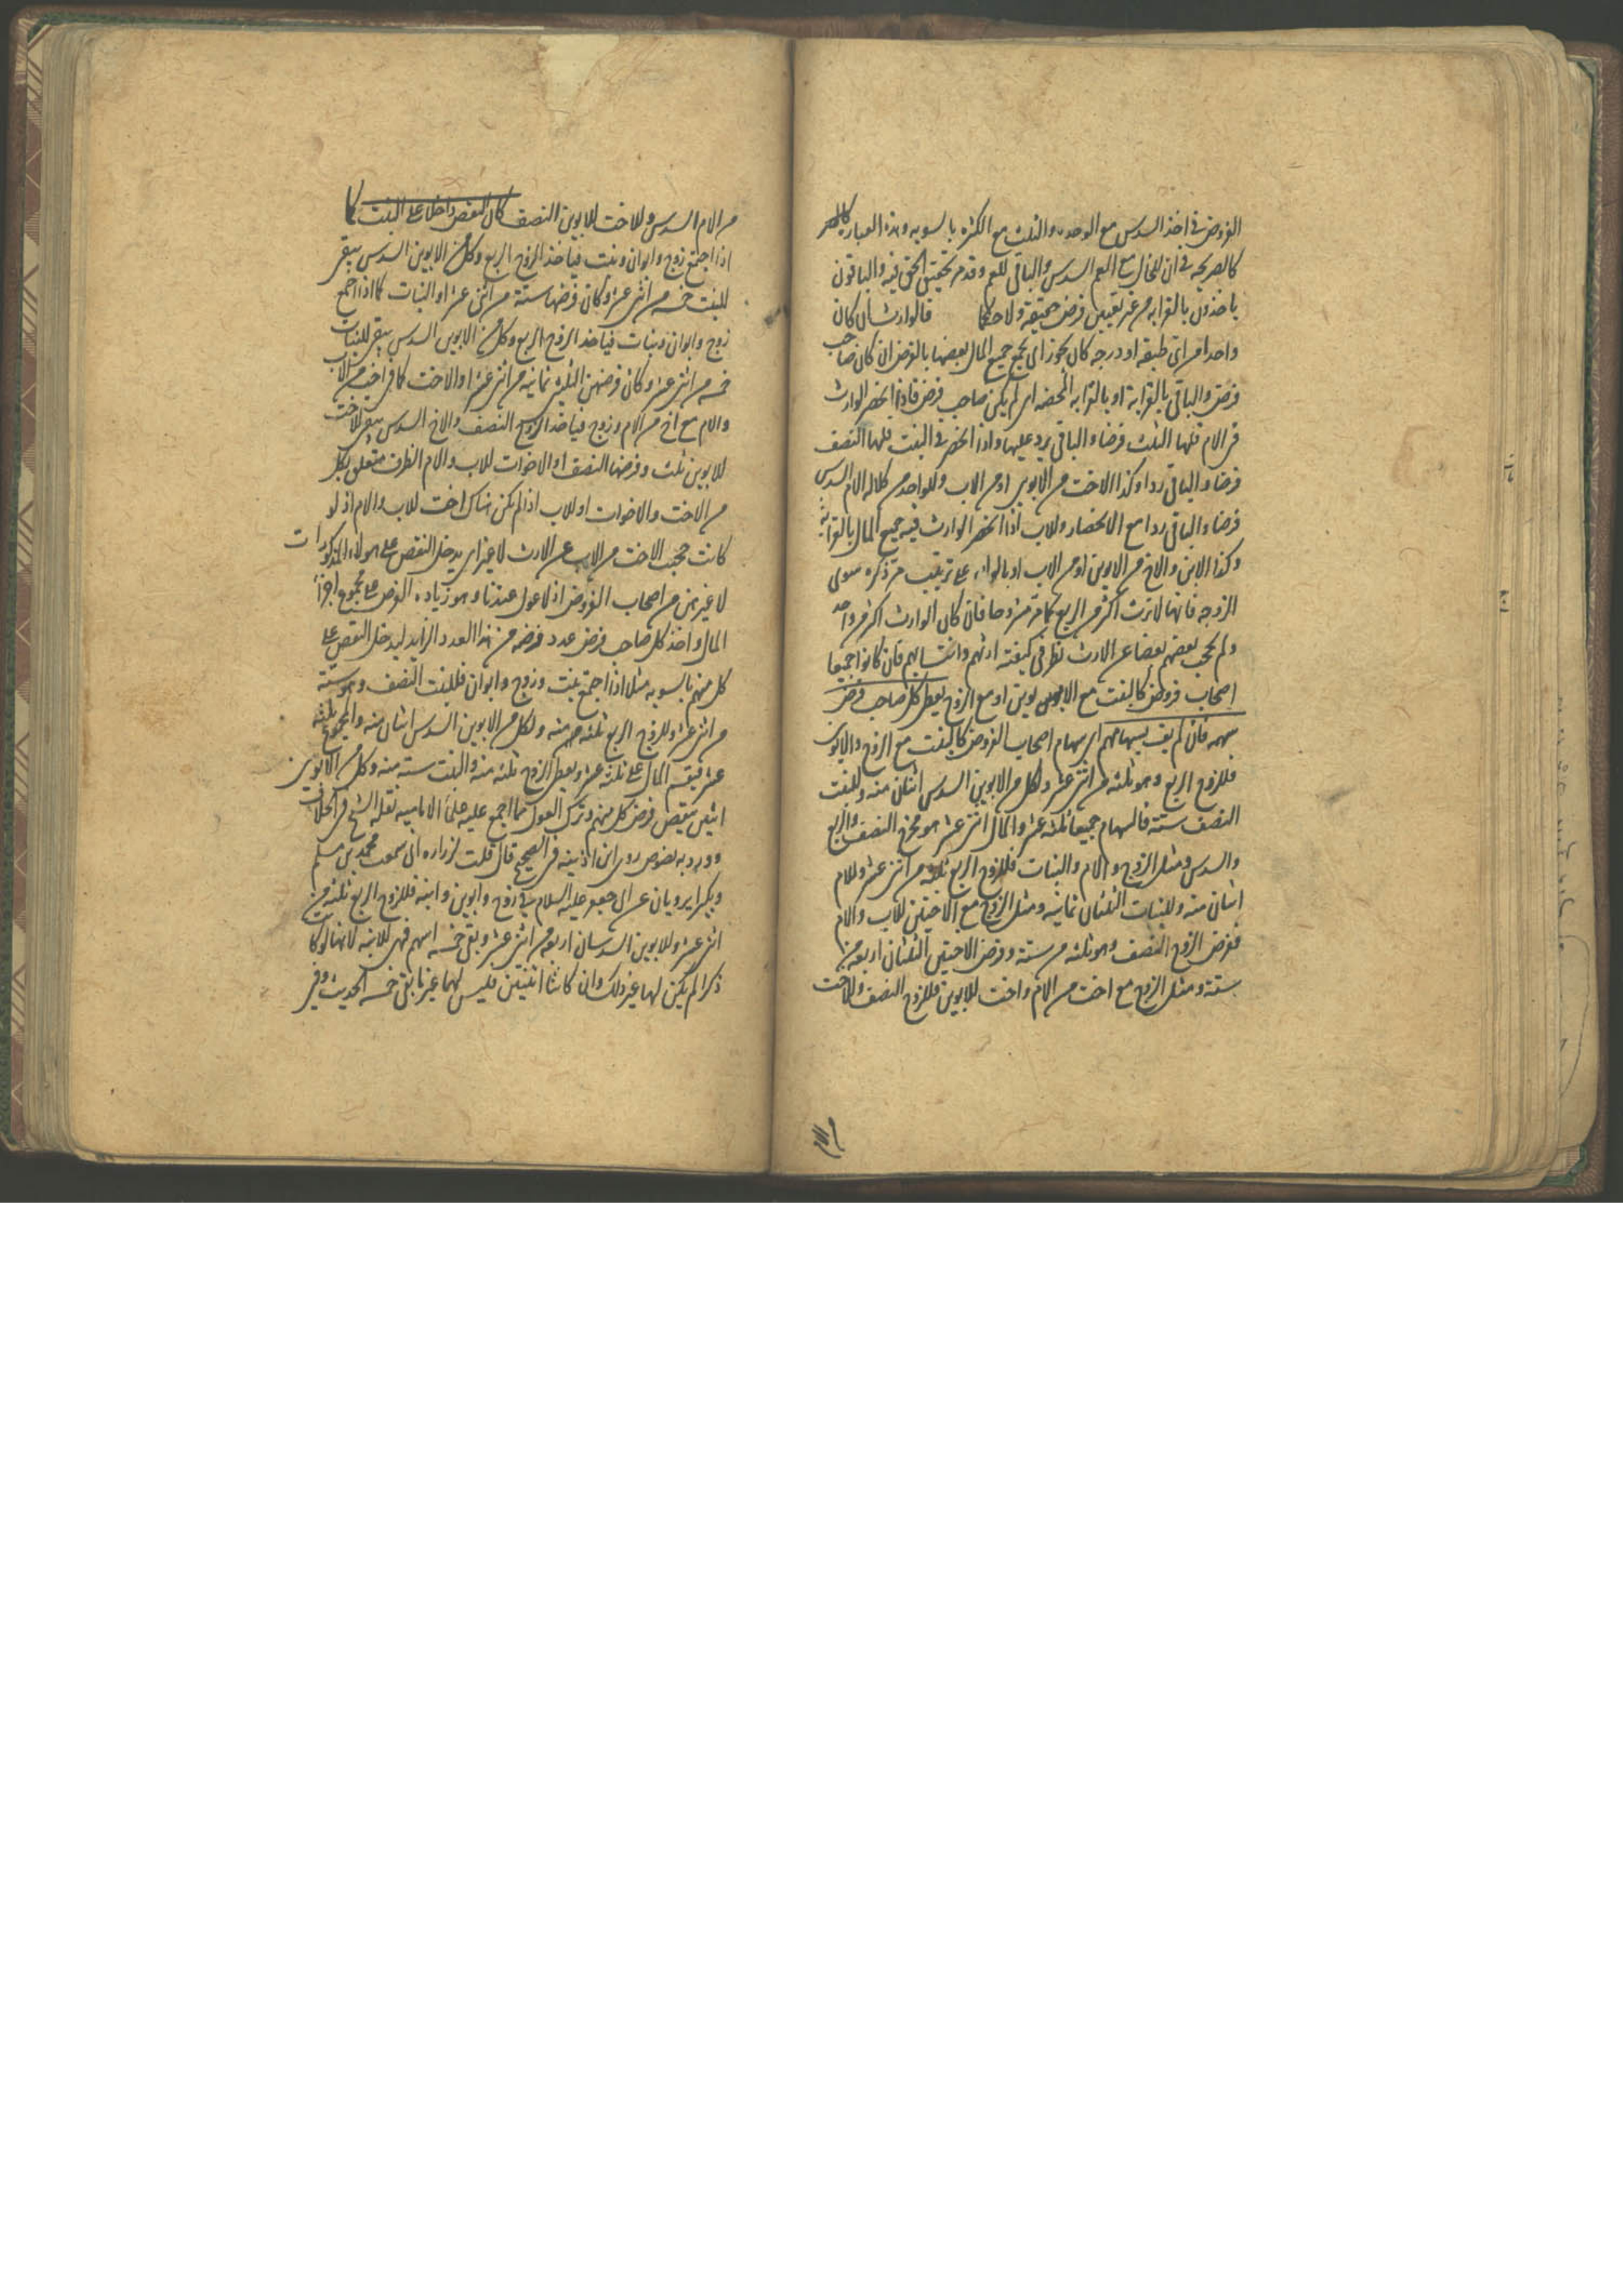 الفروض في اخذ السدس مع الوحده والثلث مع الكثره بالسويه وهذه العبار
كالصريحه في ان للخال مع العم السدس والباقي للعم وقد مر تحقيق الحق فيه والباقون
ياخذون بالقرابه من غير تعيين فرض حقيقة ولا حكما فالوارث ان كان
واحدا من اي طبقه او درجه كان يحوز اي يجمع جميع المال بعضها بالفرض ان كان صاحب
فرض والباقي بالقرابة او بالقرابه المحضه ان لم يكن صاحب فرض فاذا انحصر الوارث
في الام فلها الثلث فرضا والباقي يرد عليها واذا انحصر في البنت فلها النصف
فرضا والباقي ردا وكذا الاخت من الابوين او من الاب وللواحد من كلاله الام السدس
فرضا والباقي ردا مع الانحصار وللاب اذا انحصر الوارث فيه جميع المال بالقرابة
وكذا الابن والاخ من الابوين او من الاب او بالولاء على ترتيب مر ذكره سوى
الزوجه فانها لا ترث اكثر من الربع كما مر مشروحا فان كان الوارث اكثر من واحد
ولم يحجب بعضهم بعضا عن الارث نظر في كيفية ارثهم وانتسابهم فان كانوا جميعا
اصحاب فروض كالبنت مع الابوين او مع الزوج يعطى كل صاحب فرض
سهمه فان لم يف بسهامهم اي سهام اصحاب الفروض كالبنت مع الزوج والابوين
فللزوج الربع وهو ثلثه من اثني عشر ولكل من الابوين السدس اثنان منه وللبنت
النصف ستة فالسهام جميعا ثلثه عشر والمال اثني عشر هو مخرج النصف والربع
والسدس ومثل الزوج والام والبنات فللزوج الربع ثلثه من اثني عشر وللام
اثنان منه وللبنات الثلثان ثمانيه ومثل الزوج مع الاختين للاب والام
ففرض الزوج النصف وهو ثلثه من ستة وفرض الاختين الثلثان اربعه من
ستة ومثل الزوج مع اخت من الام واخت للابوين فللزوج النصف وللاخت
من الام السدس وللاخت للابوين النصف كان النقص داخلا على البنت كما
اذا اجتمع زوج وابوان وبنت فياخذ الزوج الربع وكل من الابوين السدس يبقى
للبنت خمسه من اثني عشر وكان فرضها ستة من اثني عشر او البنات كما اذا اجتمع
زوج وابوان وبنات فياخذ الزوج الربع وكل من الابوين السدس يبقى للبنات
خمسه من اثني عشر وكان فرضهن الثلثين ثمانيه من اثني عشر او الاخت كما في اخت من الاب
والام مع اخ من الام وزوج فياخذ الزوج النصف والاخ السدس يبقى للاخت
للابوين ثلث وفرضها النصف او الاخوات للاب والام الظرف متعلق بكل
من الاخت والاخوات او للاب اذا لم يكن هناك اخت للاب والام اذ لو
كانت حجبت الاخت من الاب عن الارث لا غير اي يدخل النقص على هولاء المذكورات
لا غيرهن من اصحاب الفروض اذ لا عول عندنا وهو زياده الفرض على مجموع اجزاء
المال واخذ كل صاحب فرض عدد فرضه من هذا العدد الزايد ليدخل النقص على
كل منهم بالسويه مثلا اذا اجتمع بنت وزوج وابوان فللبنت النصف وهو ستة
من اثني عشر وللزوج الربع ثلثه منه ولكل من الابوين السدس اثنان منه والمجموع ثلثه
عشر فيقسم المال على ثلثه عشر ويعطى الزوج ثلثه منه والبنت ستة منه وكل من الابوين
اثنين ينقص فرض كل منهم وترك العول مما اجمع عليه علماء الاماميه نقله الشيخ في الخلاف
وورد به نصوص روى ابن اذينه في الصحيح قال قلت لزراره اني سمعت محمد بن مسلم
وبكيرا يرويان عن ابي جعفر عليه السلام في زوج وابوين وابنه فللزوج الربع ثلثه من
اثني عشر وللابوين السدسان اربعه من اثني عشر وبقى خمسه اسهم فهى للابنه لانها لو كانت
ذكرا لم يكن لها غير ذلك وان كانتا اثنتين فليس لهما غير ما بقى خمسه الحديث وفي